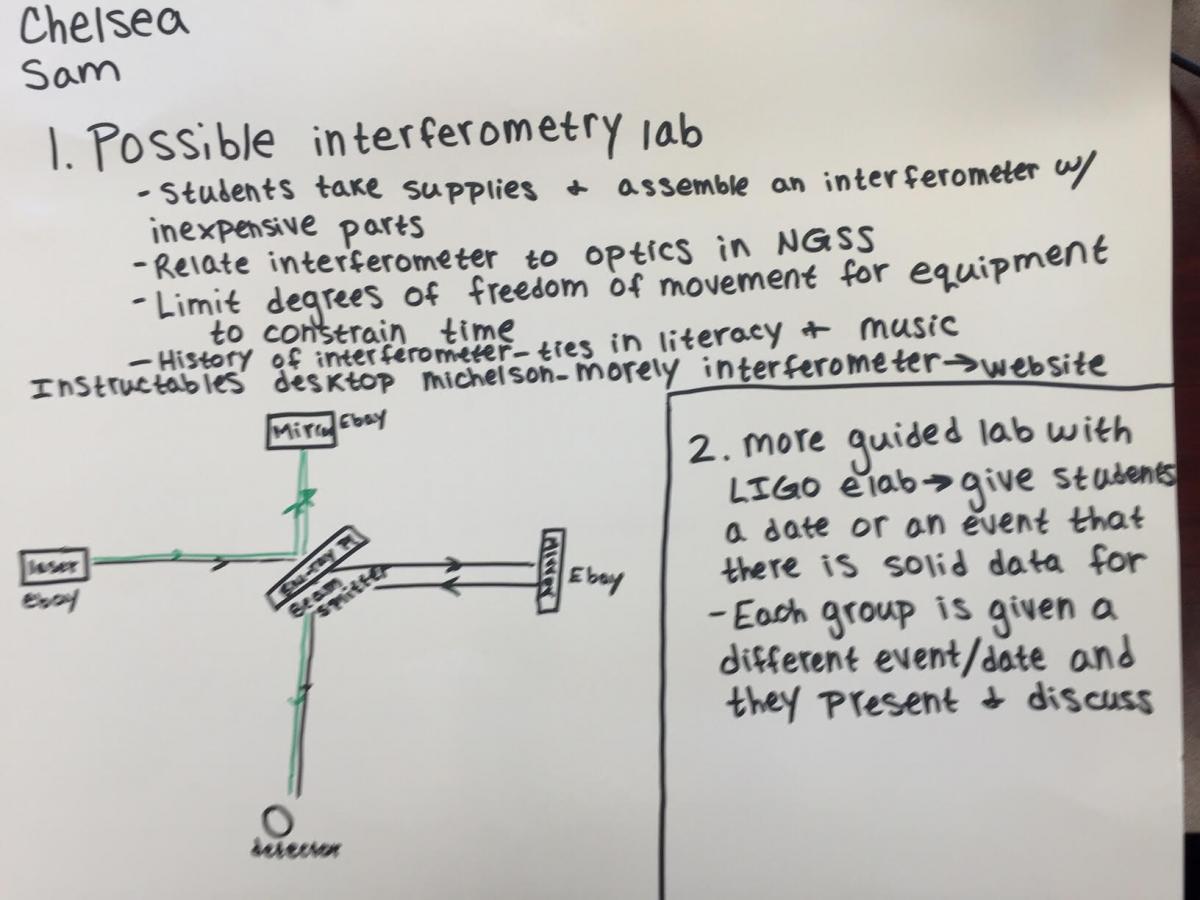 Chelsea
Sam
1. Possible interferometry lab
- Students take supplies & assemble an interferometer w/
inexpensive parts
- Relate interferometer to optics in NGSS
- Limit degrees of freedom of movement for equipment
to constrain time
- History of interferometer - ties in literacy + music
Instructables desktop michelson-morely interferometer → website
Ebay
laser
ebay
Beam
splitter
Mirror
Ebay
detector
2. more guided lab with
LIGO elab → give students
a date or an event that
there is solid data for
- Each group is given a
different event/date and
they present & discuss